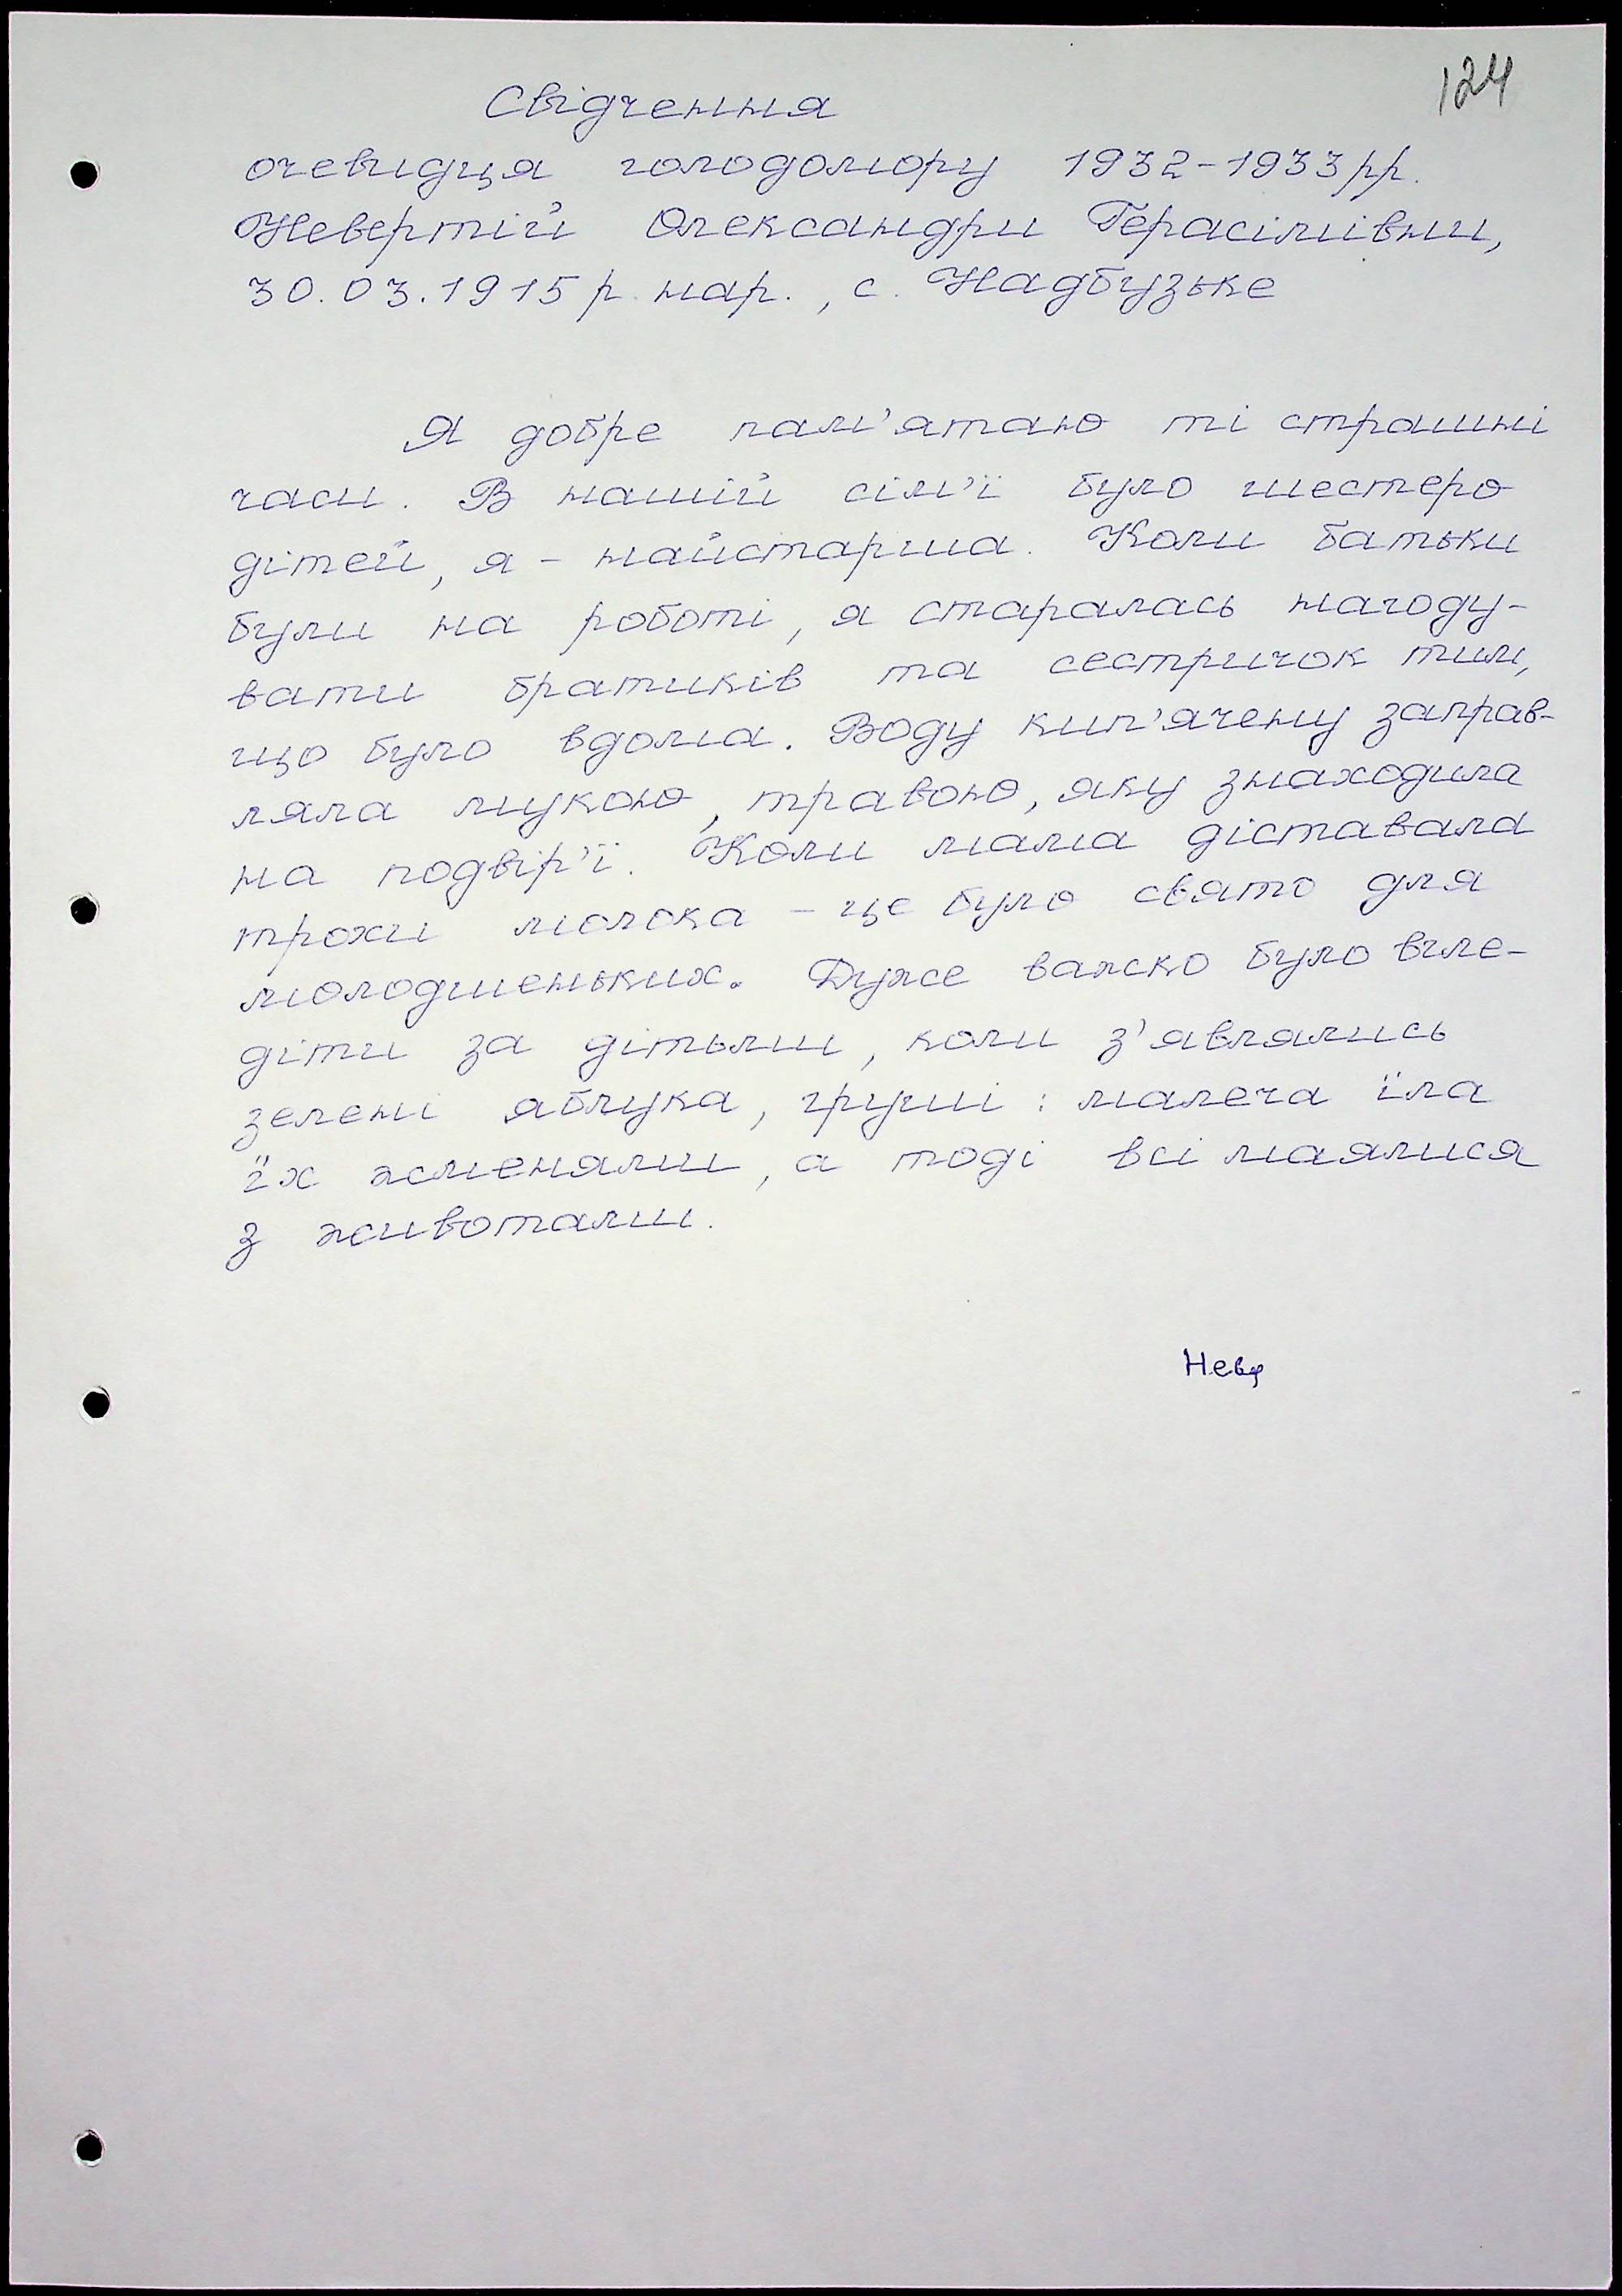 124
Свідчення
очевидця голодомору 1932-1933 рр.
Невертій Олександри Герасімівни,
30.03.1915 р. нар., с. Надбузьке
Я добре пам'ятаю ті страшні
часи. В нашій сім'ї було шестеро
дітей, я - найстарша. Коли батьки
були на роботі, я старалась нагоду-
вати братиків та сестричок тим,
що було вдома. Воду кип'ячену заправ-
ляла мукою, травою, яку знаходила
на подвір'ї. Коли мама діставала
трохи молока - це було свято для
молодшеньких. Дуже важко було вгле-
діти за дітьми, коли з'являлись
зелені яблука, груші: малеча їла
їх жменями, а тоді всі маялися
з животами.
Нев